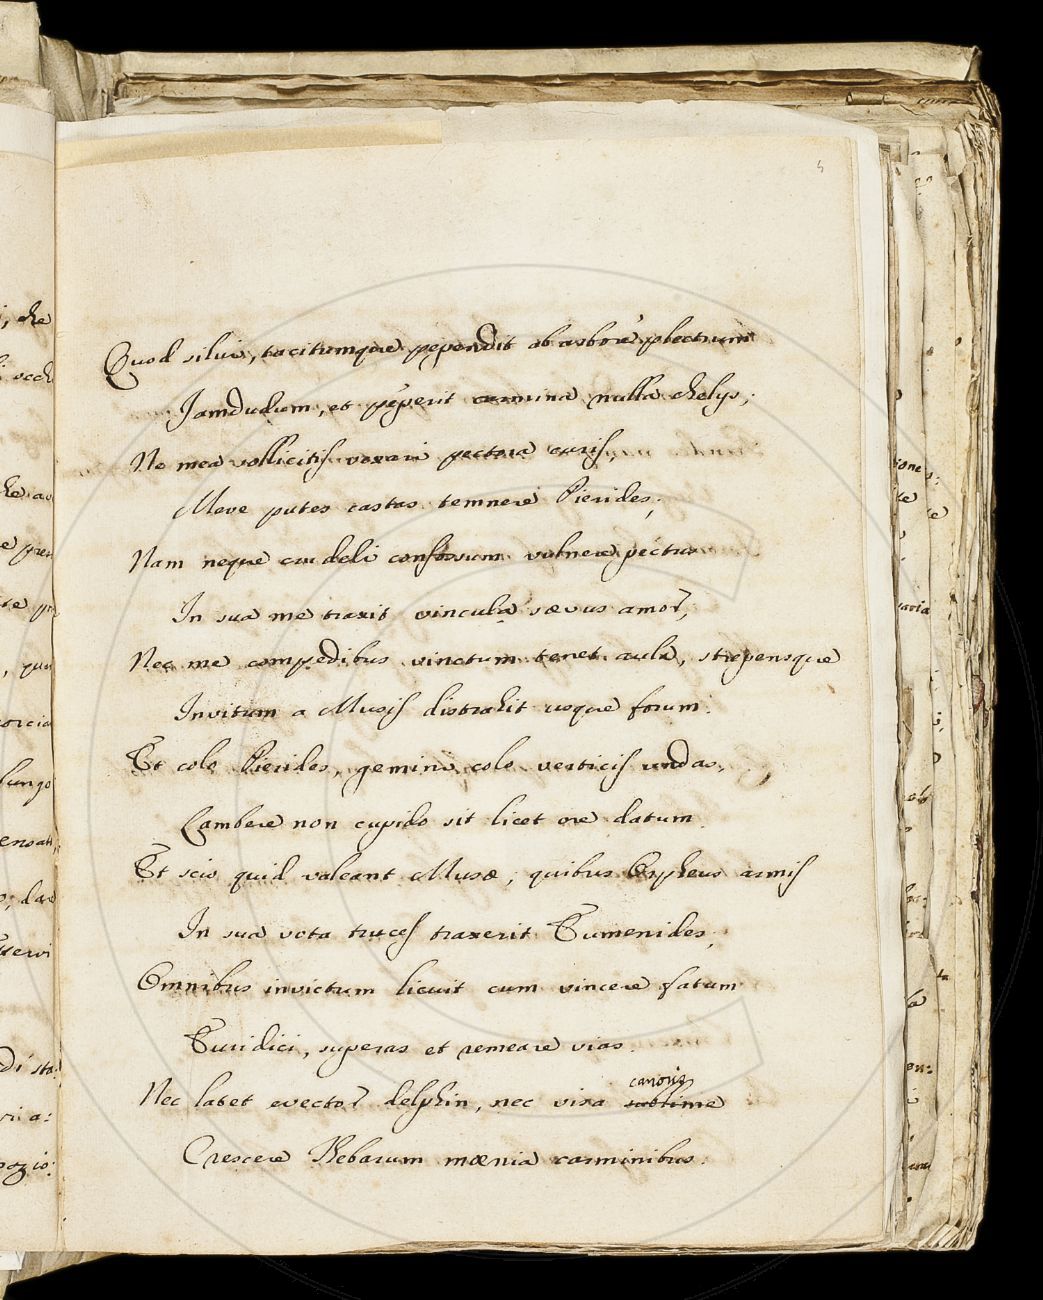 5
Quod silui, tacitumque pependit ab arbore plectrum
Jamdudum, et peperit carmina nulla chelys;
Ne mea sollicitis vexari pectora curis,
Meve putes castas temnere Pierides;
Nam neque crudeli confossum vulnere pectus
In sua me traxit vincula saevus amor,
Nec me compedibus vinctum tenet aula, strepensque
Invitum a Musis distrahit usque forum.
Et colo Pierides, gemini colo verticis undas,
Lambere non cupido sit licet ore datum.
Et scio quid valeant Musae, quibus Orpheus armis
In sua vota truces traxerit Eumenides,
Omnibus invictum licuit cum vincere fatum
Euridici, superas et remeare vias.
canoris
Nec latet evector delphin, nec visa sublime
Crescere Thebarum moenia carminibus.